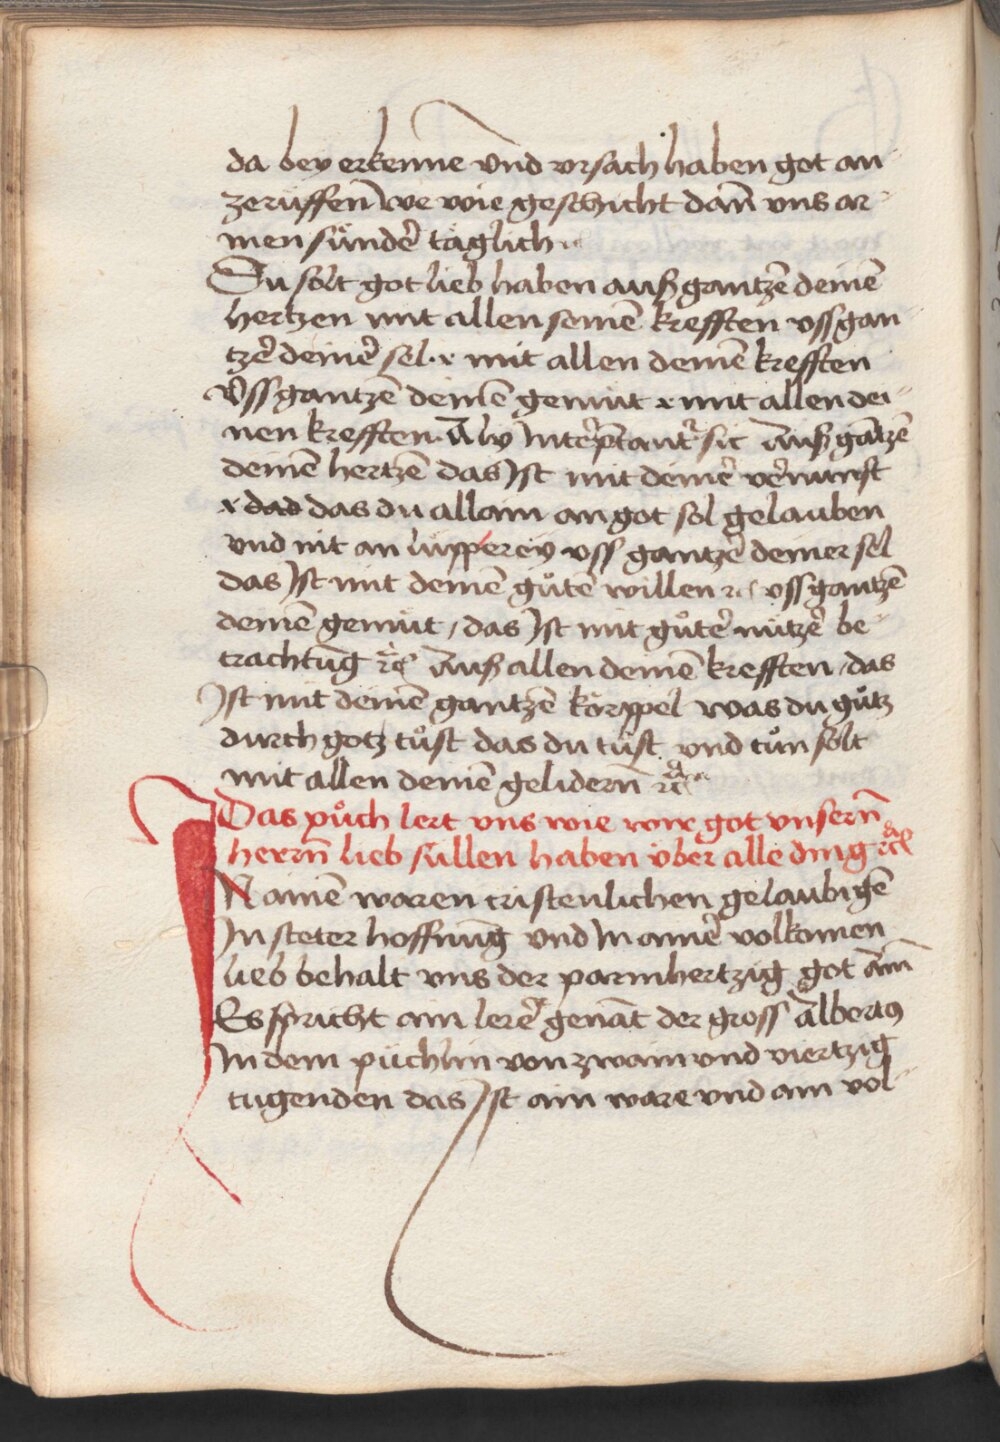 da bey erkenne vnd vrsach haben got an
zerüffen̄ we wie geschicht dan̄ vns ar
men sünder täglich
Du solt got lieb haben auß gantzē deinē
hertzen mit allen seinē krefften vss gan
tzer deiner sel · mit allen deinē krefften
Vss gantzē deinē gemüt mit allen dei
nen krefften · Aly Interp̄tant᷑ sic Auß gātzē
deinē hertzē das Ist mit deiner vernunft
dad das du allain an got sol gelauben
vnd nit an lupperey vss gantzē deiner sel
das Ist mit deinē gůtē willen ꝛc vss gantzē
deinē gemüt / das Ist mit gůter nützer be
trachtūg ꝛc̄ Auß allen deinē krefften / das
Ist mit deinē gantzē körppel was du gůtz
durch gotz tůst das du tůst vnd tůn solt
mit allen deinē gelidern̄ ꝛc̄
Das půch lert vns wie wir got vnsern̄
herrn̄ lieb süllen haben über alle ding ꝛc̄
IN ainē waren cristenlichen gelaubigē
In steter hoffnūg vnd In ainer volkomen
lieb behalt vns der parmhertzig got am̄
Es spricht ain lerer genāt der gross Albertꝰ
In dem püchlin von zwain vnd viertzig
tugenden das Ist ain ware vnd ain vol